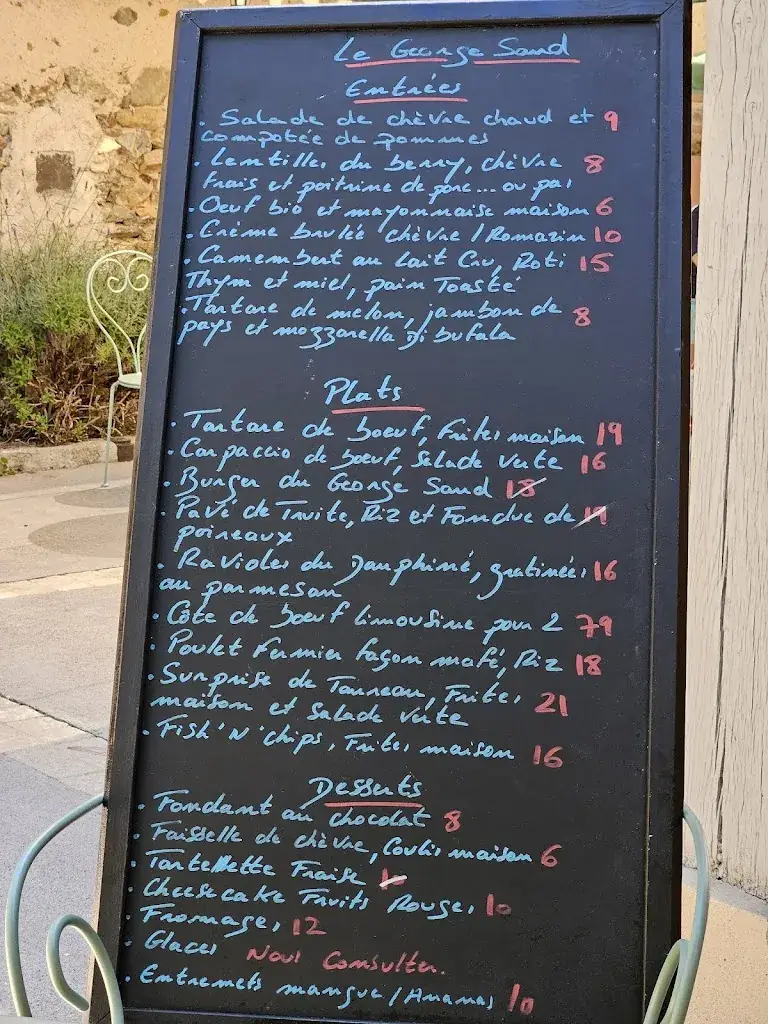 Le George Sand
Entrées
. Salade de chèvre chaud et 9
compotée de pommes
. Lentilles du berry, chèvre 8
frais et poitrine de porc... ou pas
. Oeuf bio et mayonnaise maison 6
. Crème brulée chèvre / Romarin 10
. Camembert au lait Cru, Roti 15
Thym et miel, pain Toasté
. Tartare de melon, jambon de 8
pays et mozzarella di bufala
Plats
. Tartare de boeuf, frites maison 19
. Carpaccio de boeuf, Salade verte 16
. Burger du George Sand 18
. Pavé de Truite, Riz et Fondue de 19
poireaux
. Ravioles du Dauphiné, gratinées 16
au parmesan
. Côte de boeuf limousine pour 2 79
. Poulet fermier façon mafé, Riz 18
. Surprise de Taureau, Frites 21
maison et Salade verte
. Fish 'N' chips, Frites maison 16
Desserts
. Fondant au chocolat 8
. Faisselle de chèvre, Coulis maison 6
. Tartelette Fraise 10
. Cheesecake Fruits Rouges 10
. Fromages 12
. Glaces Nous Consulter.
. Entremets mangue / Ananas 10